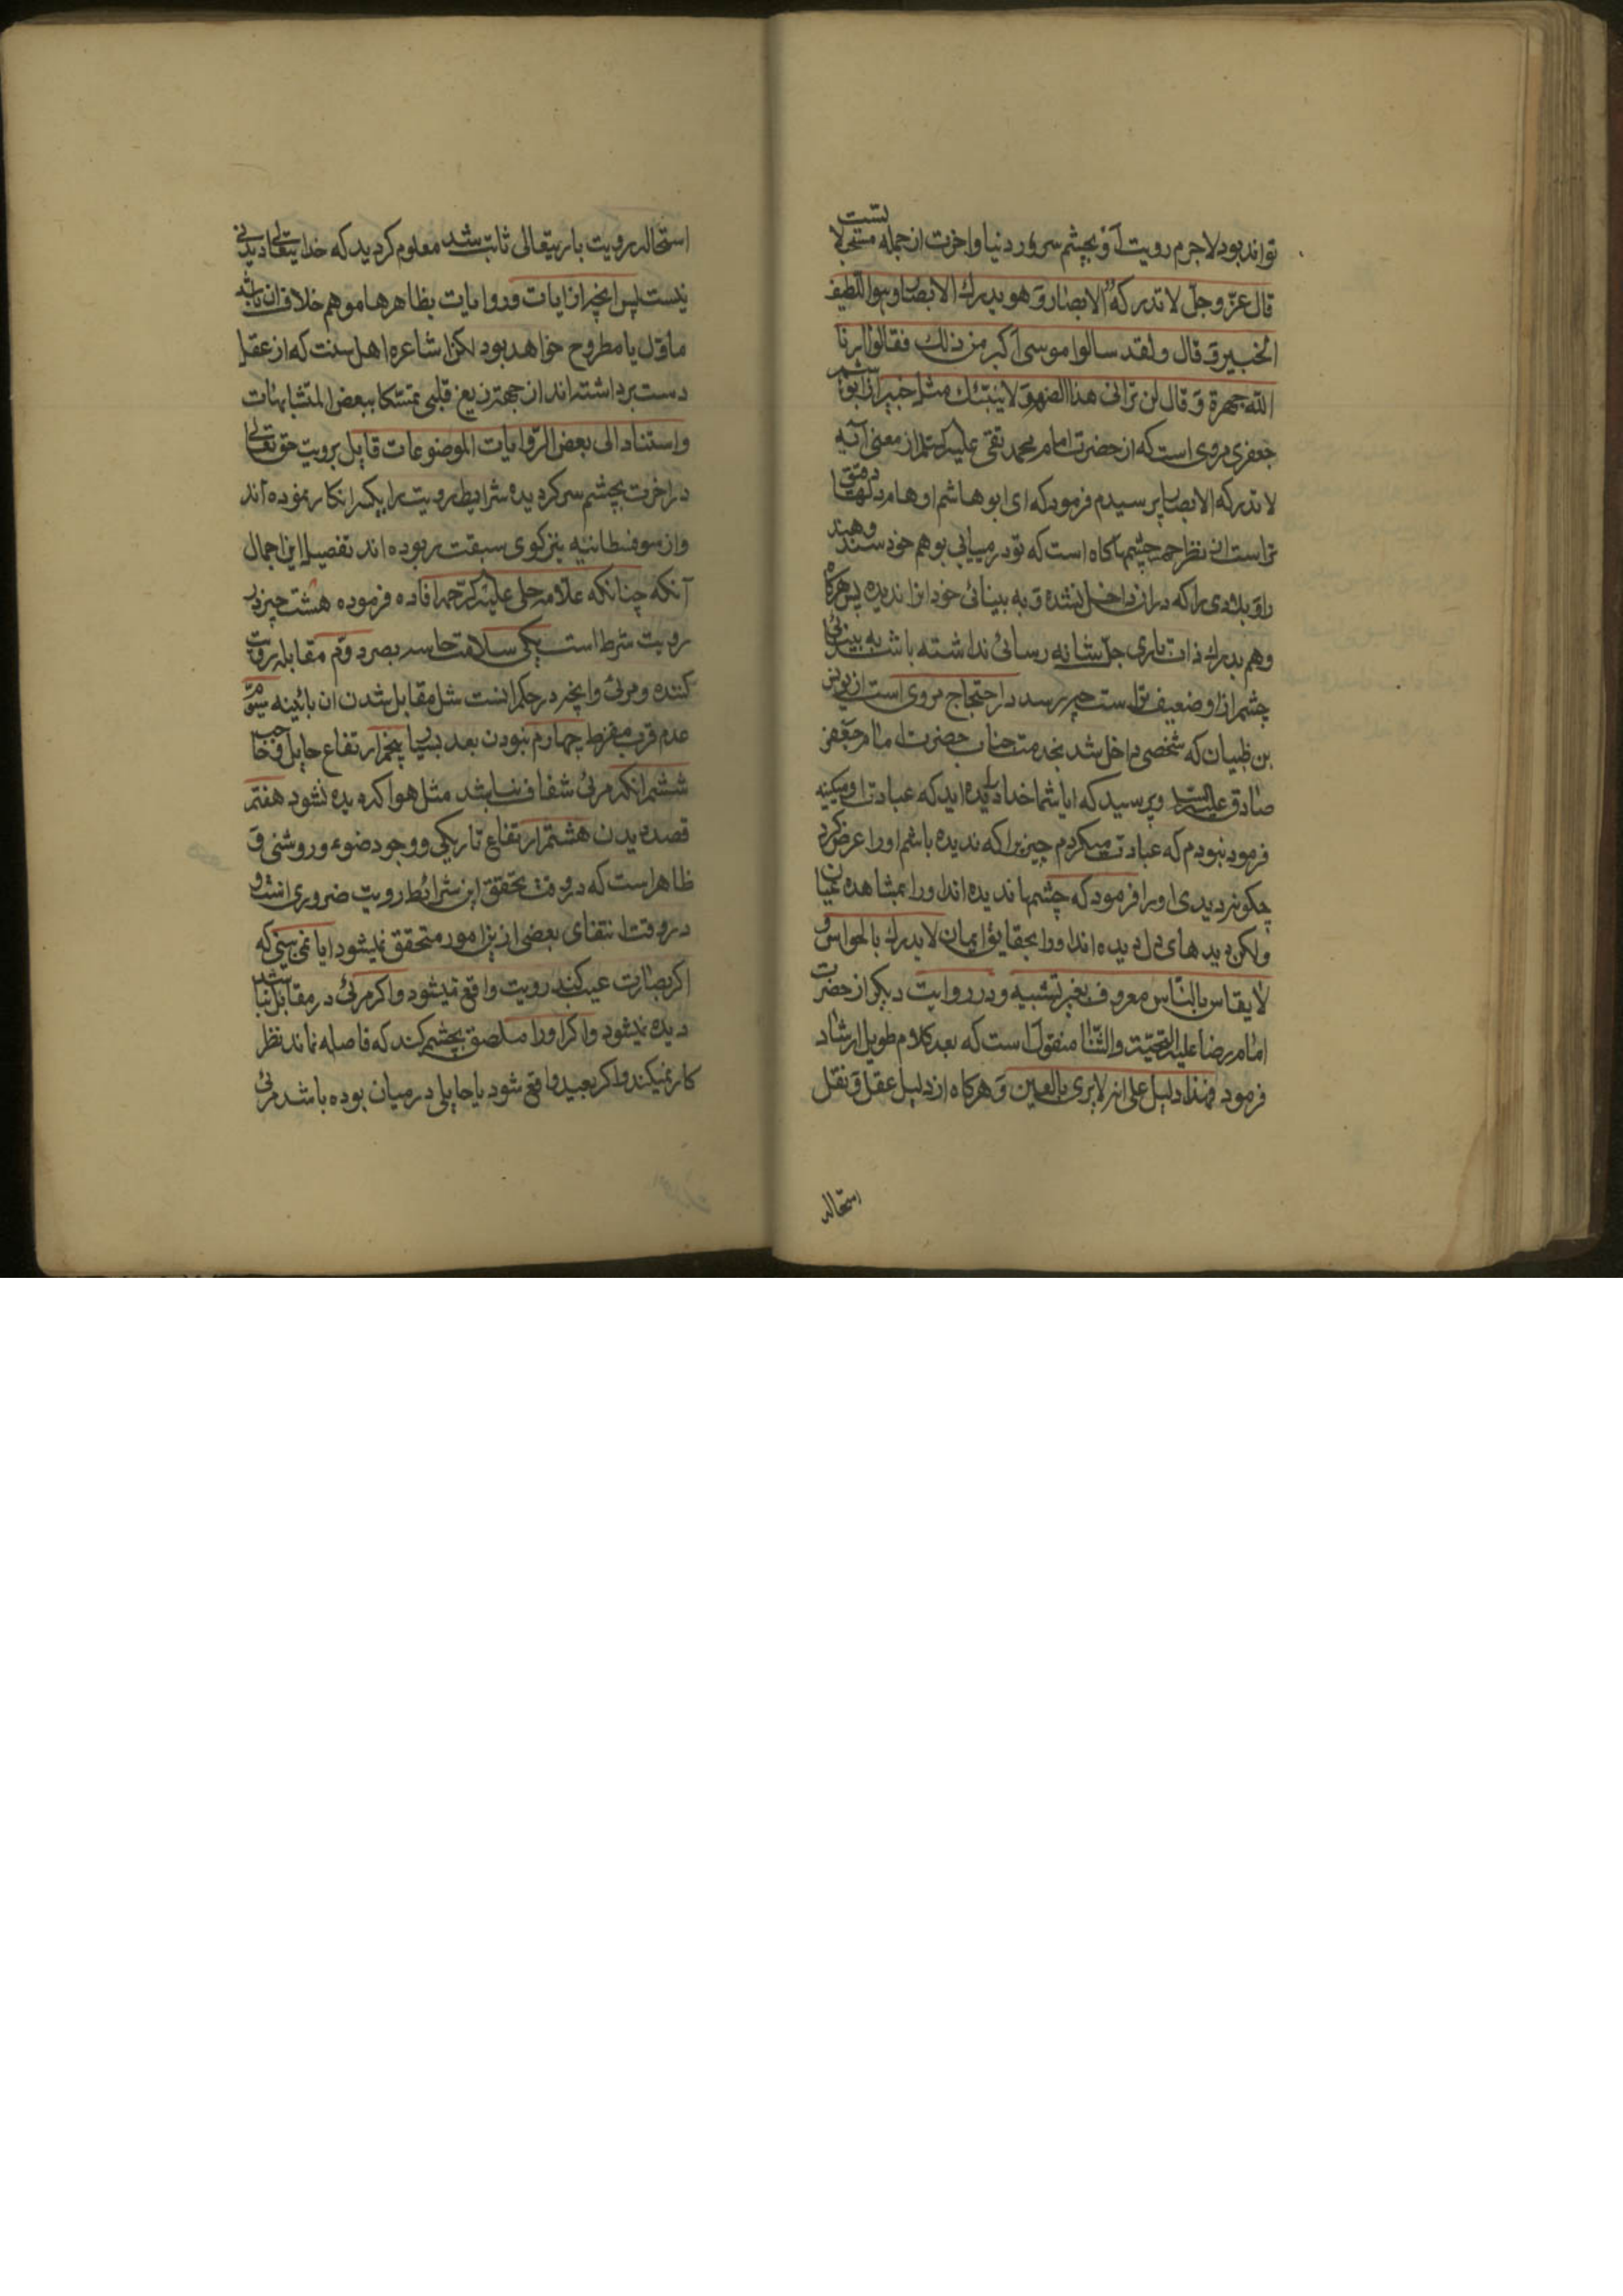 تواند بود لاجرم رویت او بچشم سر در دنیا و اخرت از جمله مستحیلا تست
قال عزّ وجلّ لا تدرکه الابصار وَ هو یدرك الابصار وهو اللطیف
الخبیر وَ قال ولقد سالوا موسی اکبر من ذلك فقالوا ارنا
الله جهرة وَ قال لن ترانی هذا الضهوَ لا ینبئك مثل خبیر از ابو هاشم
جعفری مروی است که از حضرت امام محمد تقی علیه السلام از معنی آیه
لا تدرکه الابصار پرسیدم فرمود که ای ابو هاشم اوهام دلها دقیق
تر است از نظرهم چشمها کاه است که تو در میابی بوهم خود سند وهند
را وَ بلادی را که در ان داخل نشده وَ به بینائی خود انرا ندیده پس هرکاه
وهم بدرك ذات باری جلّ شانه رسائی نداشته باشد به بینائی
چشم از او ضعیف تر است چه رسد در احتجاج مروی است از یونس
بن ظبیان که شخصی داخل شد بخدمت جناب حضرت امام جعفر
صادق علیه السلام و پرسید که ایا شما خدا را دیده اید که عبادت او میکنید
فرمود نبودم که عبادت میکردم چیزیرا که ندیده باشم او را عرض کرد
چکونه دیدی او را فرمود که چشمها ندیده اند او را بمشاهده عیان
ولکن دیدهای دل دیده اند او را بحقایق ایمان لا یدرك بالحواس و
لا یقاس بالنّاس معروف بغیر تشبیه و در روایت دیکر از حضرت
امام رضا علیه التحیّة والثّنا منقول است که بعد کلام طویل ارشاد
فرمود فهذا دلیل علی انه لا یری بالعین وَ هرکاه از دلیل عقل وَ نقل
استحاله
استحاله رویت باریتعالی ثابت شد معلوم کردید که خدایتعالی دیدنی
نیست پس انچه از ایات و روایات بظاهرها موهم خلاف ان باشد
ماوّل یا مطروح خواهد بود لکن اشاعره اهل سنت که از عقل
دست برداشته اند از جهة زیغ قلبی متمسکا ببعض المتشابهات
واستنادا الی بعض الرّوایات الموضوعات قایل برویت حق تعالی
در اخرت بچشم سر کردیده شرایط رویت را یکسر انکار نموده اند
واز سوفسطائیه نیز کوی سبقت ربوده اند تفصیل این اجمال
آنکه چنانکه علّامه حلی علیه الرحمه افاده فرموده هشت چیز در
رویت شرط است یکی سلامت حاسه بصر دوّم مقابله رویت
کننده و مرئی وانچه در حکم انست مثل مقابل شدن ان بائینه سیّوم
عدم قرب مفرط چهارم نبودن بعد بسیار پنجم ارتفاع حایل و حاجب
ششم انکه مرئی شفاف نباشد مثل هوا که دیده نشود هفتم
قصد دیدن هشتم ارتفاع تاریکی و وجود ضوء و روشنی وَ
ظاهر است که در وقت تحقق این شرائط رویت ضروری است و
در وقت انتفای بعضی از نیز امور متحقق نمیشود ایا نمی بینی که
اکر بصارت عیب کند رویت واقع نمیشود و اکر مرئی در مقابل نباشد
دیده نمیشود و اکر او را ملصق بچشم کنند که فاصله نماند نظر
کار نمیکند و اکر بعید واقع شود یا حایلی در میان بوده باشد مرئی